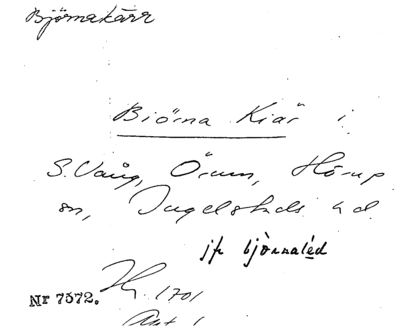 Björnakärr
Biörna Kiär i
S. Vång, Örum, Hörup
sn, Ingelstads hd.
jfr björnaled
Nr 7572. 1701